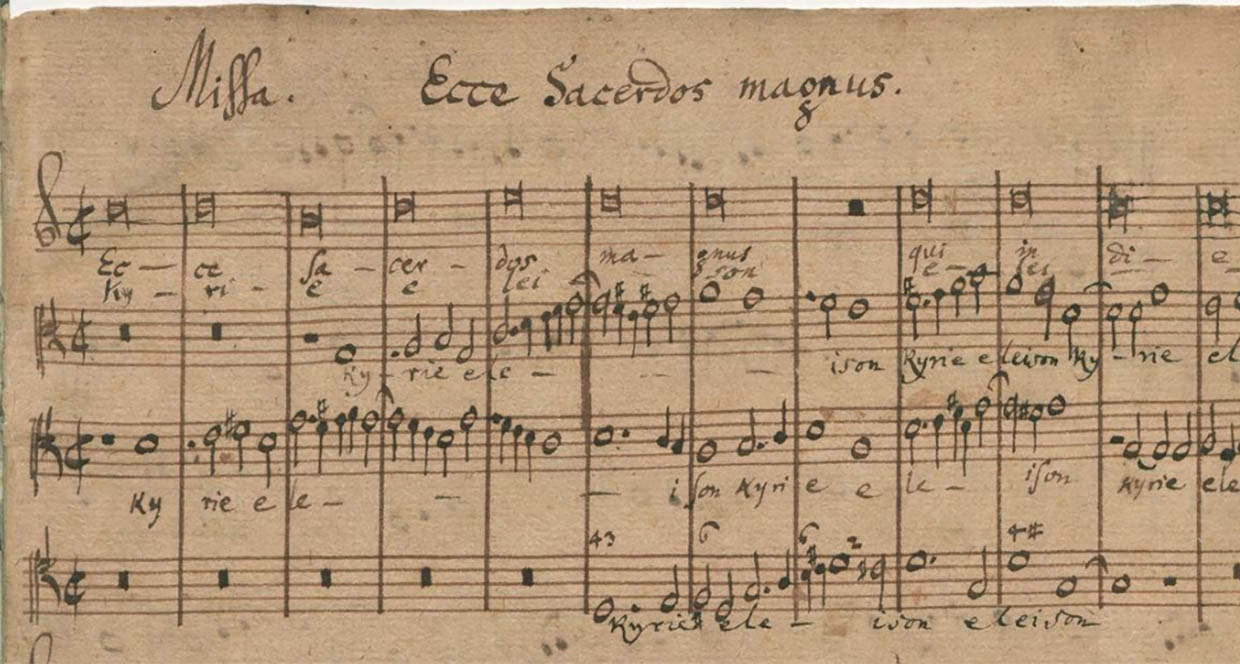 Missa. Ecce Sacerdos magnus.
Ec - ce Sa - cer - dos ma - gnus qui in di - e
Ky - ri - e e lei son e - lei
Ky - rie e le - - - - ison Kyrie eleison Ky - rie el
Ky rie e le - - - ison Kyri e e le - ison Kyrie ele
43 6 6 2 4#
Kyrie ele - ison eleison